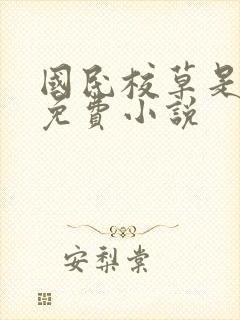 國民校草是
免費小說
安梨棠